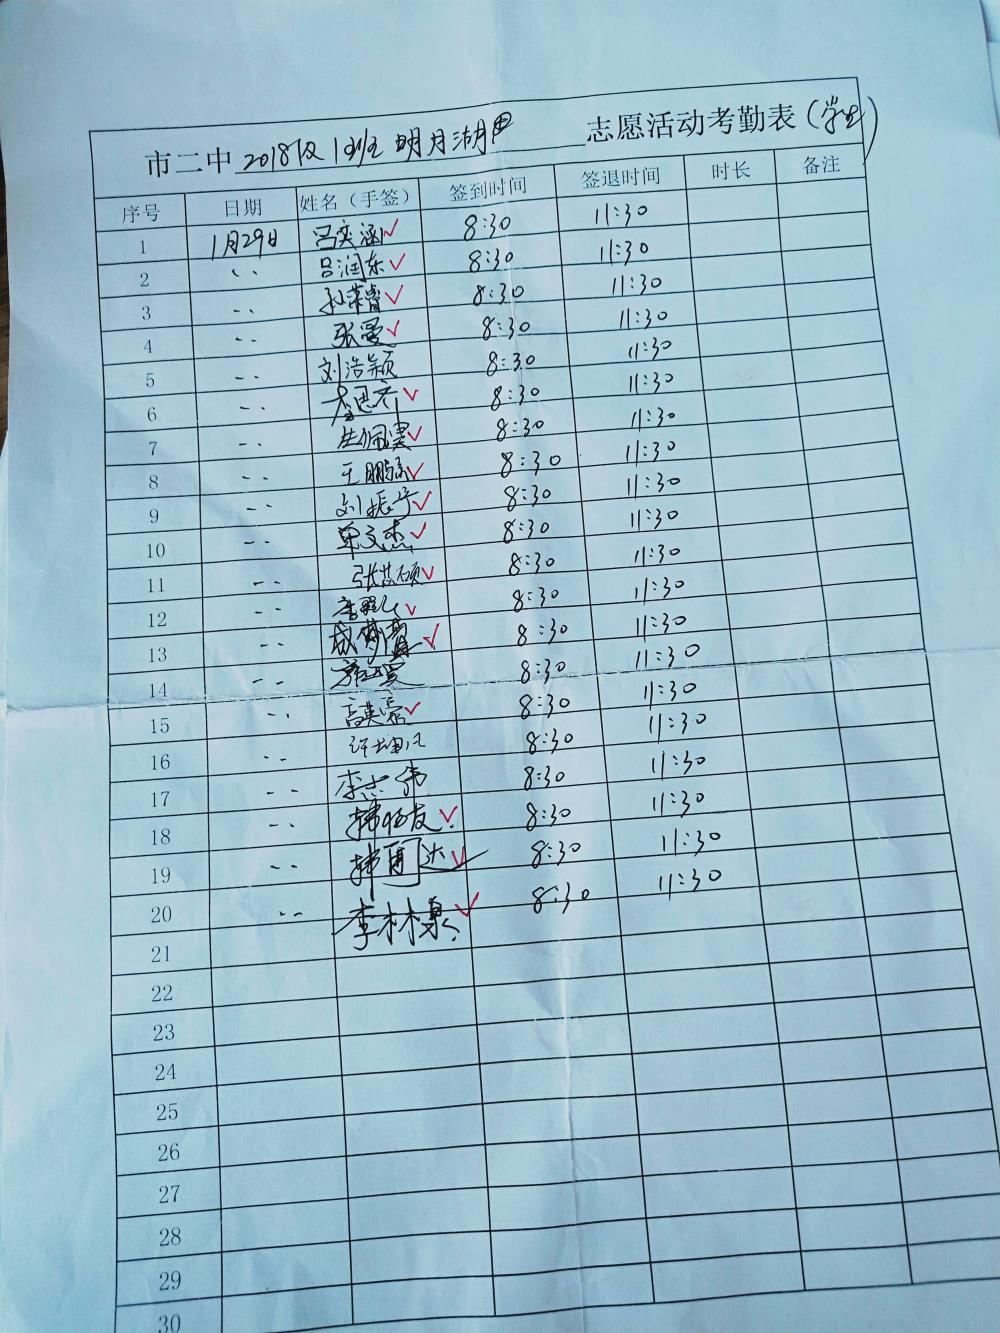 市二中 2018级1班 明月湖 志愿活动考勤表(学生)
序号 日期 姓名（手签） 签到时间 签退时间 时长 备注
1 1月29日 吕奕涵 ✓ 8:30 11:30
2 〃 吕润东 ✓ 8:30 11:30
3 〃 孙荣睿 ✓ 8:30 11:30
4 〃 张曼 ✓ 8:30 11:30
5 〃 刘浩颖 8:30 11:30
6 〃 ✓ 8:30 11:30
7 〃 ✓ 8:30 11:30
8 〃 王鹏 ✓ 8:30 11:30
9 〃 刘振宇 ✓ 8:30 11:30
10 〃 单文杰 ✓ 8:30 11:30
11 〃 张芯硕 ✓ 8:30 11:30
12 〃 ✓ 8:30 11:30
13 〃 ✓ 8:30 11:30
14 〃 8:30 11:30
15 〃 高英豪 ✓ 8:30 11:30
16 〃 8:30 11:30
17 〃 李志伟 8:30 11:30
18 〃 韩 友 ✓ 8:30 11:30
19 〃 韩 达 ✓ 8:30 11:30
20 〃 李林 ✓ 8:30 11:30
21
22
23
24
25
26
27
28
29
30